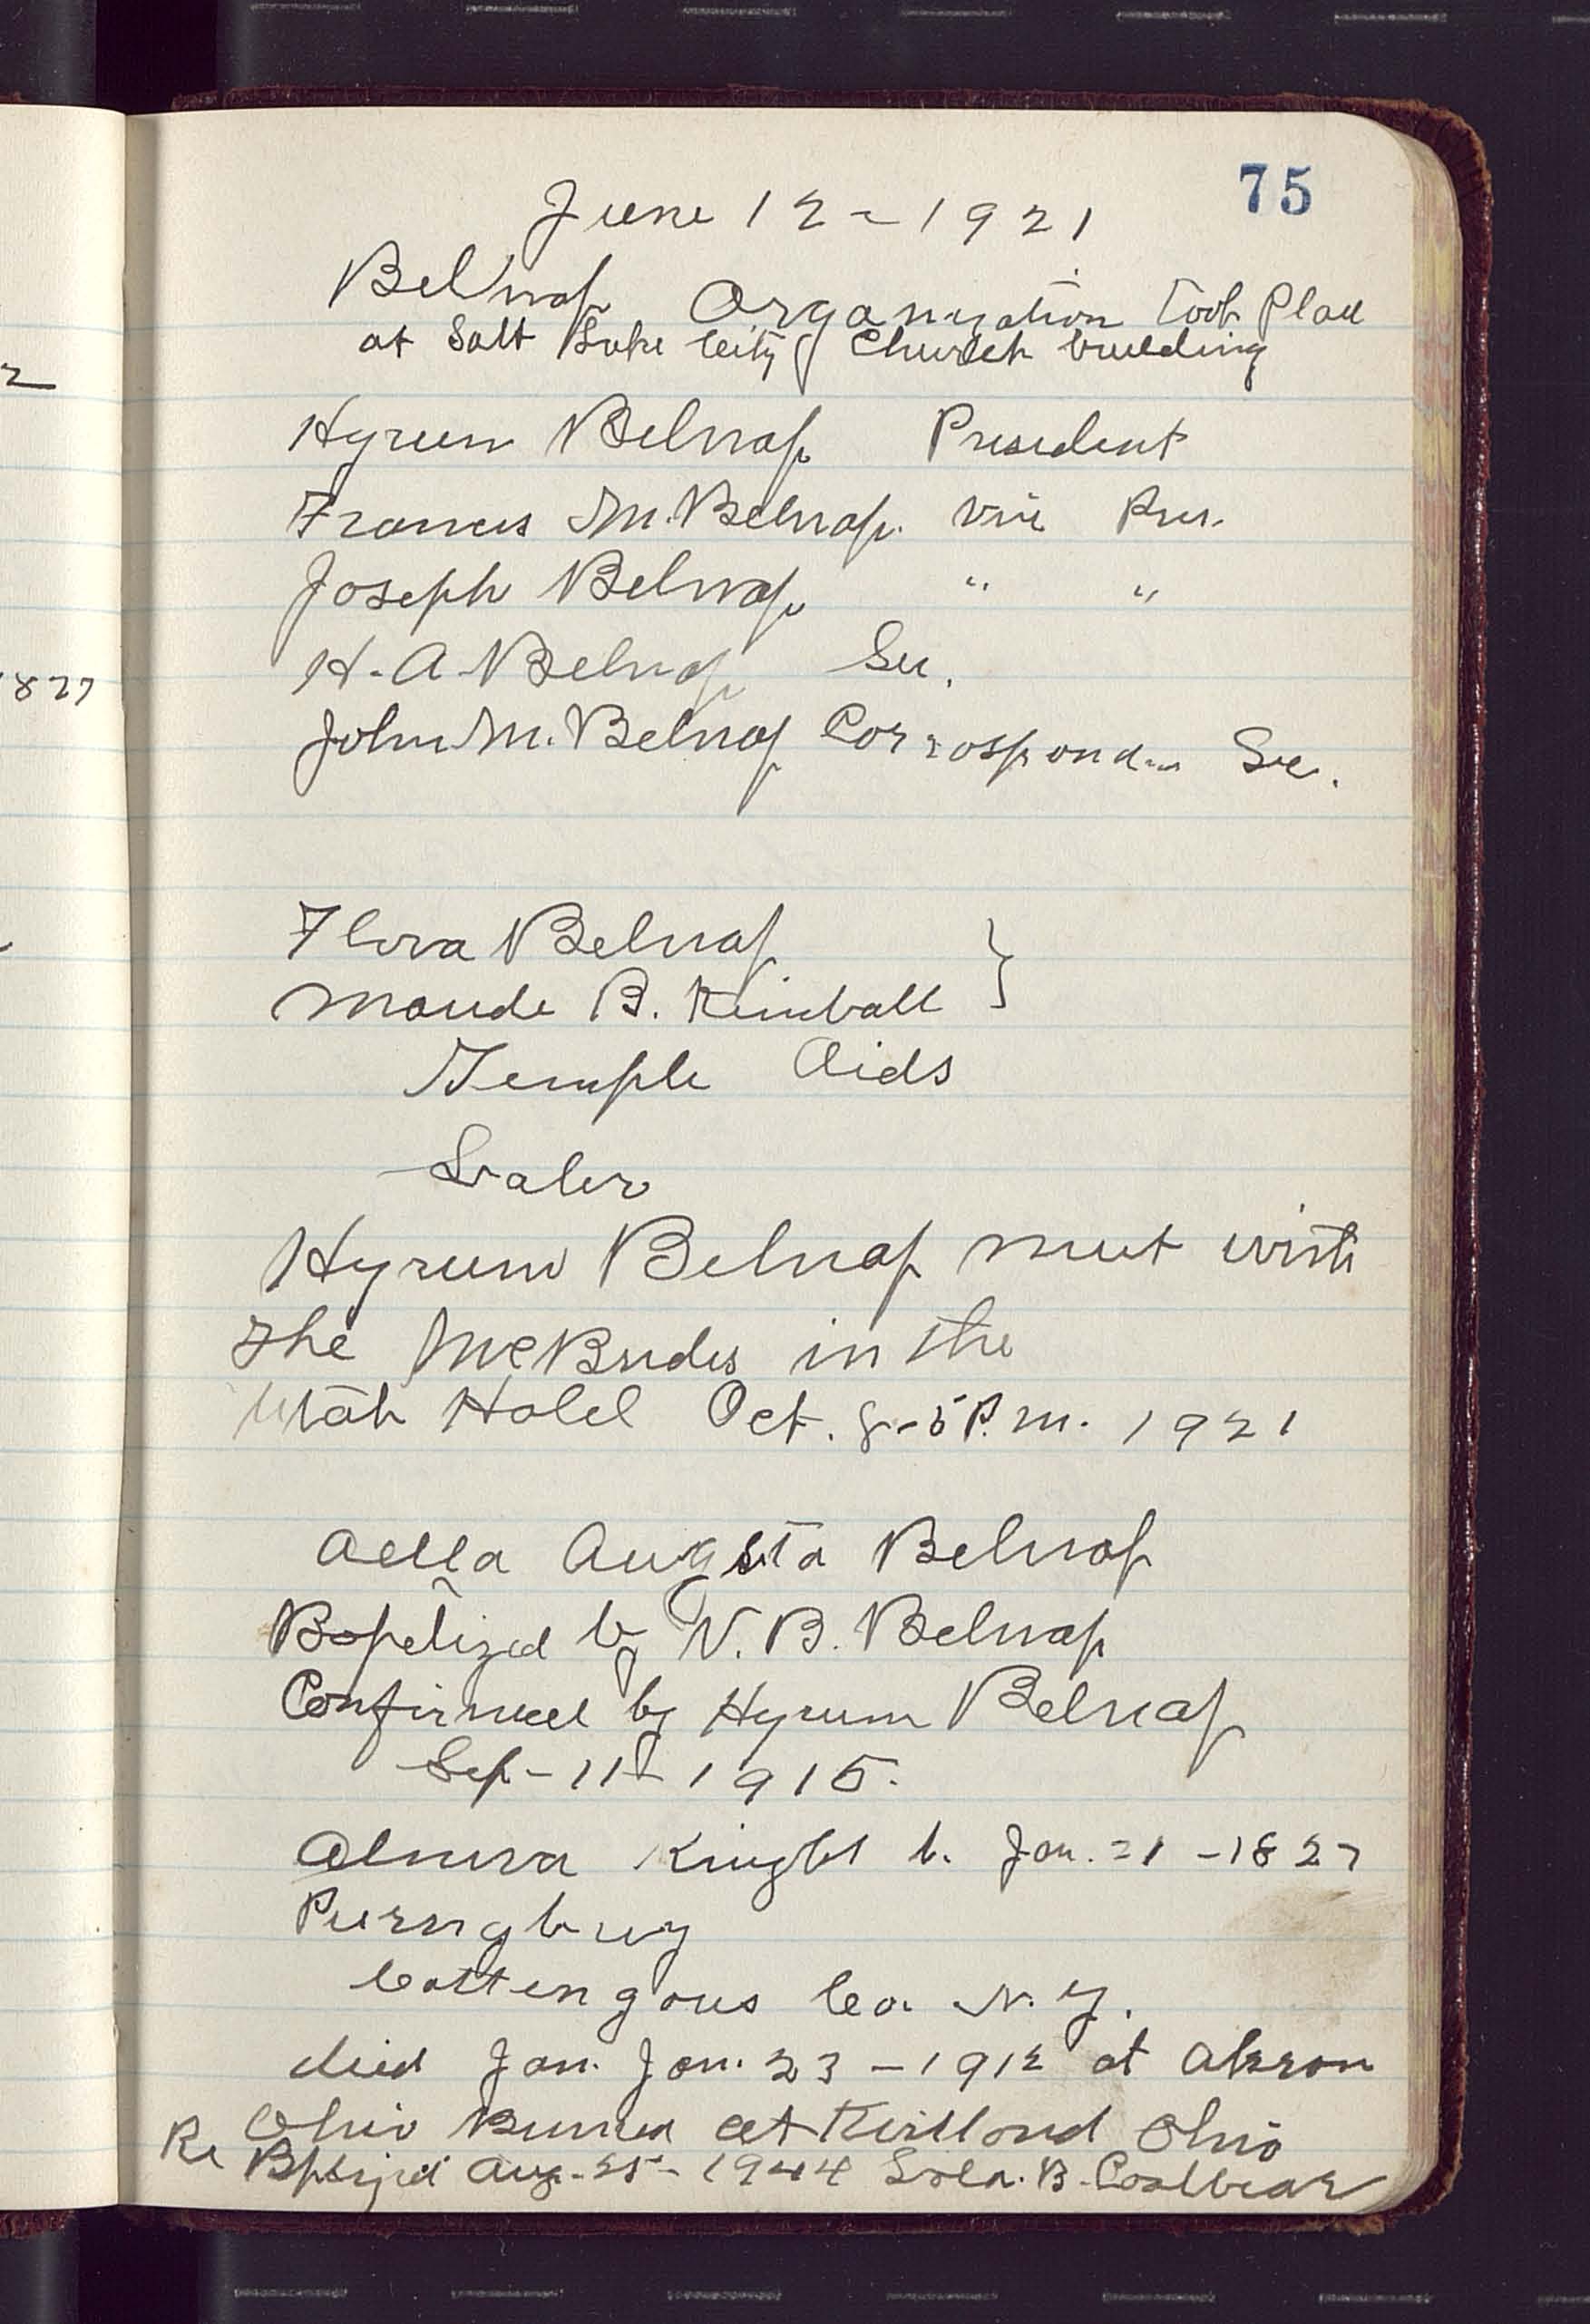 75
June 12 - 1921
Belnap Organization Took Place
at Salt Lake City Church building
Hyrum Belnap President
Francis M. Belnap. vice Pres.
Joseph Belnap " "
H. A. Belnap Sec.
John M. Belnap Correspond... Sec.
Flora Belnap }
Maude B. Kimball
Temple Aids
Later
Hyrum Belnap meet with
the McBrides in the
Utah Hotel Oct. 8 - 5 P.M. 1921
Aella Augsta Belnap
Bapetized by V. B. Belnap
Confirmed by Hyrum Belnap
Sep - 11 - 1915.
Almira Knight b. Jan. 21 - 1827
Perrygbury
Cattengous Co. N. Y.
died Jan. Jan. 23 - 1912 at Akron
Ohio Buried at Kirtland Ohio
Re Bptized Aug - 25 - 1944 Lola. B. Coalbear
2
1827